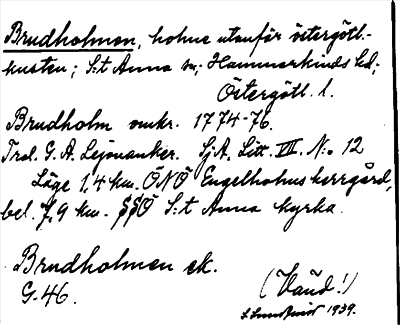 Brudholmen, holme utanför östergötl.-
kusten; S:t Anna sn; Hammarkinds hd;
Östergötl. l.
Brudholm omkr. 1774-76.
Trol. G. A. Lejonanker. SjA, Litt. VII. N:o 12
Läge 1,4 km. ÖNÖ Engelholms herrgård,
bel. 7,9 km. SSÖ S:t Anna kyrka.
Brudholmen ek.
G. 46.
(Vaud!)
1939.